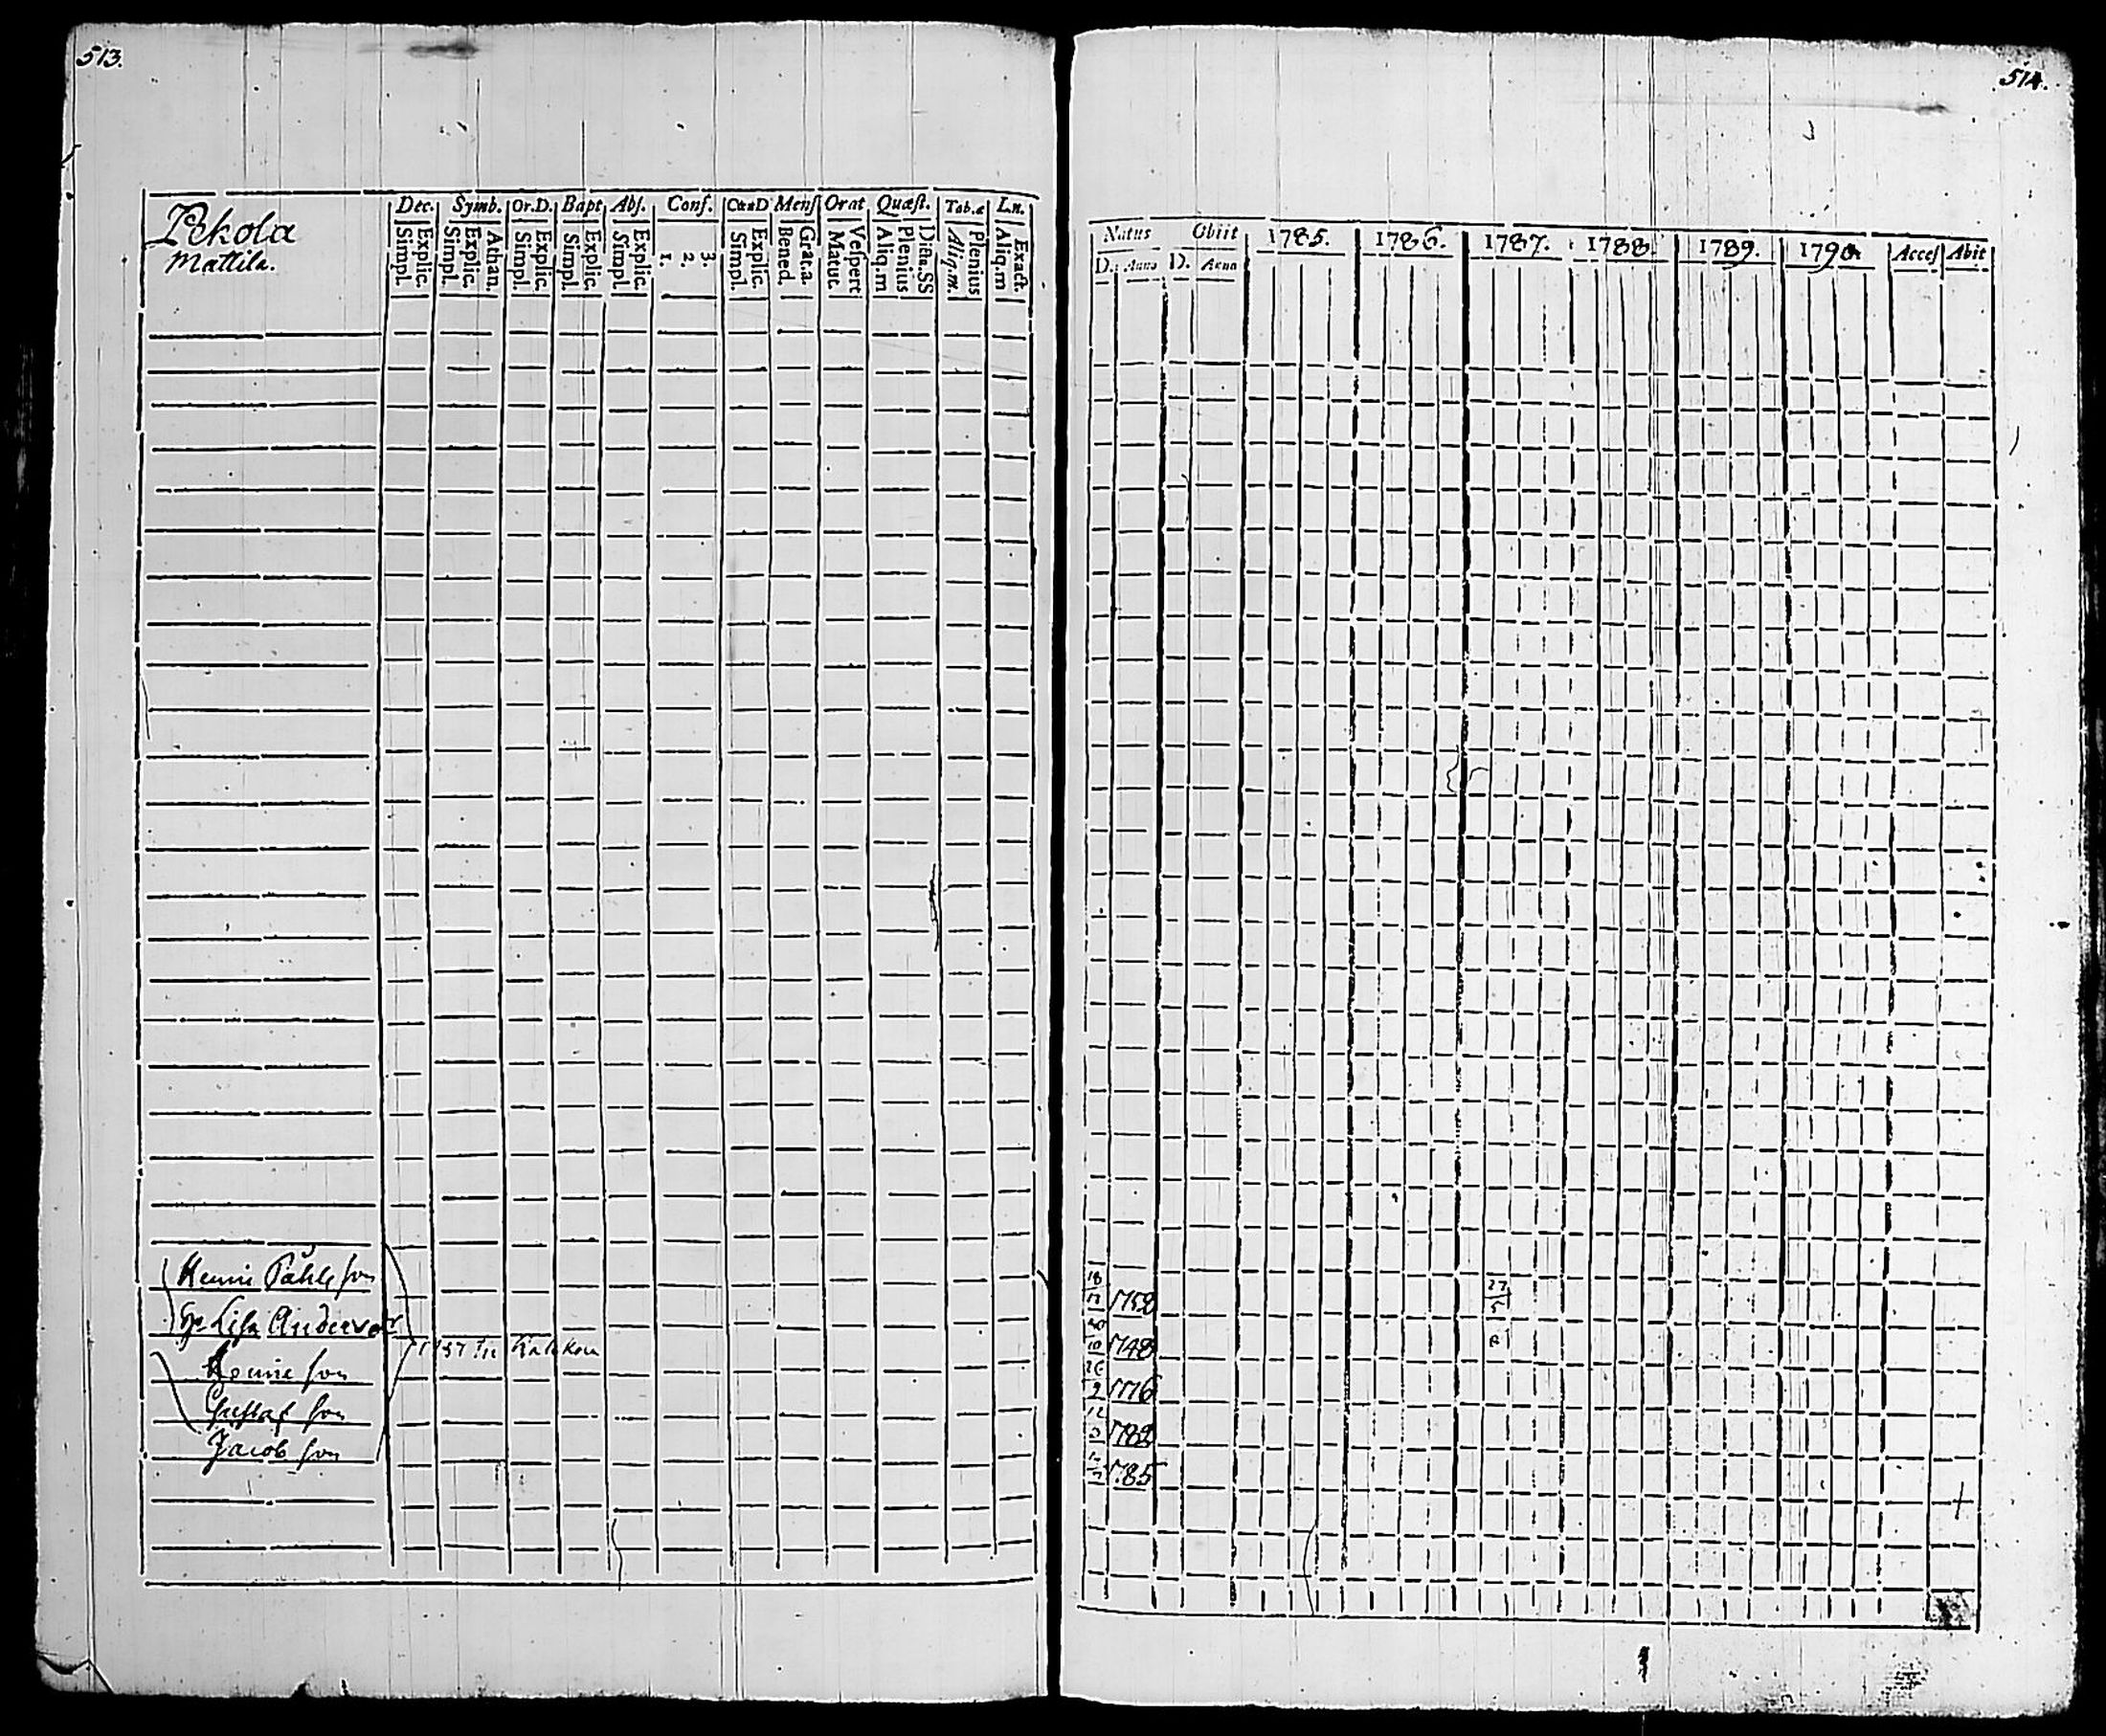 513.
Pekola
Mattila.
Dec. Symb. Or.D. Bapt Abs. Conf. CœnD Mens Orat Quæst. Tab.æ L.n.
Simpl. Explic. Simpl. Explic. Athan. Simpl. Explic. Simpl. Explic. Simpl. Explic. 1. 2. 3. Simpl. Explic. Bened. Grat.a Matut. Vespert Aliq.m Plenius Dicta.SS Aliq.m. Plenius Aliq.m Exact.
Henric Påhlsson
H: Lisa Andersdr
Henric son
Gustaf son
Jacob son
514.
Natus Obiit 1785. 1786. 1787. 1788. 1789. 1790. Acces Abit
D. Anno D. Anno
1752
27
5
1748
1776
1782
1785